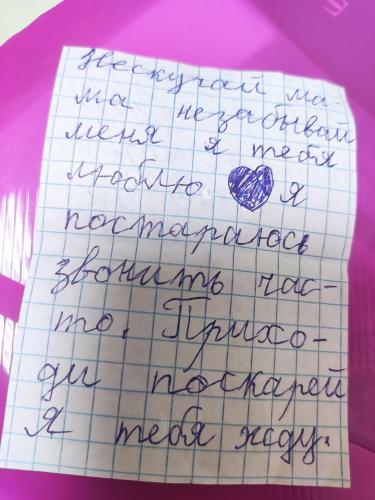 Нескучай ма-
ма незабывай
меня я тебя
люблю я
постараюсь
звонить час-
то. Прихо-
ди поскарей
Я тебя жду.